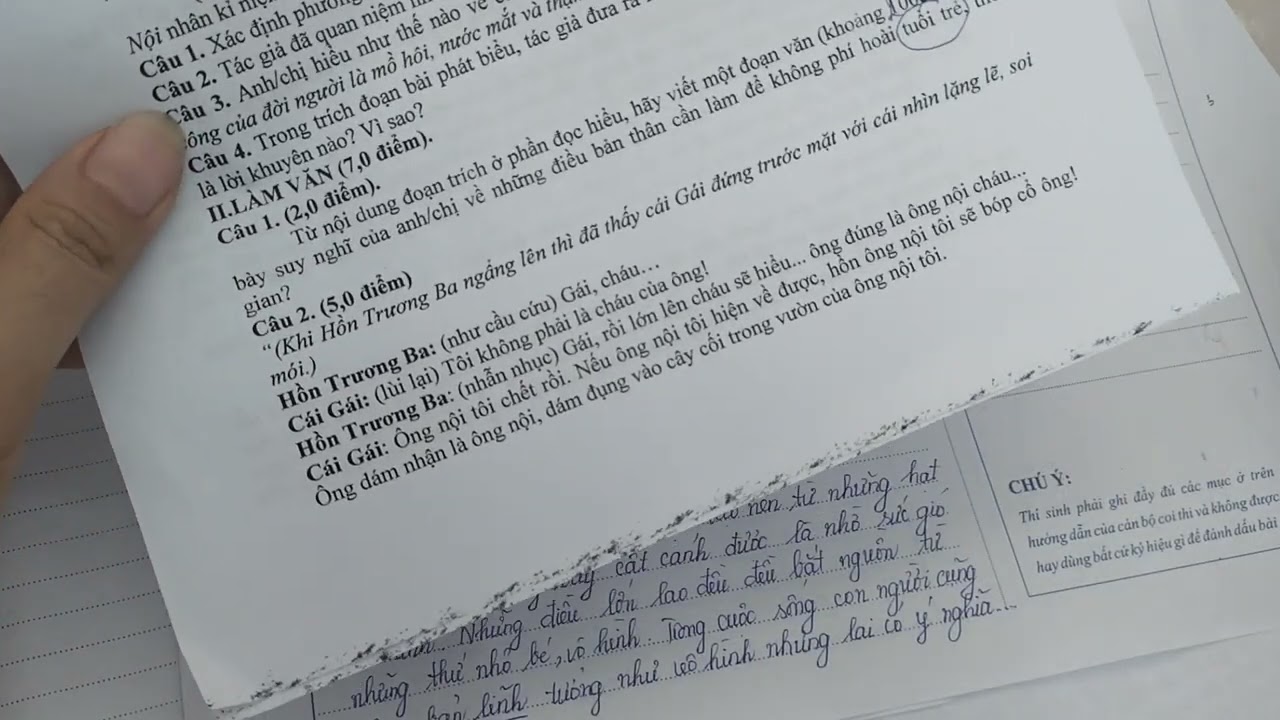 Nội nhân kỉ
Câu 1. Xác định phương
Câu 2. Tác giả đã quan niệm
Câu 3. Anh/chị hiểu như thế nào về
ông của đời người là mồ hôi, nước mắt và
Câu 4. Trong trích đoạn bài phát biểu, tác giả đưa ra
là lời khuyên nào? Vì sao?
II.LÀM VĂN (7,0 điểm).
Câu 1. (2,0 điểm).
Từ nội dung đoạn trích ở phần đọc hiểu, hãy viết một đoạn văn (khoảng
bày suy nghĩ của anh/chị về những điều bản thân cần làm để không phí hoài tuổi trẻ
gian?
Câu 2. (5,0 điểm)
“(Khi Hồn Trương Ba ngẩng lên thì đã thấy cái Gái đứng trước mặt với cái nhìn lặng lẽ, soi
mói.)
Hồn Trương Ba: (như cầu cứu) Gái, cháu...
Cái Gái: (lùi lại) Tôi không phải là cháu của ông!
Hồn Trương Ba: (nhẫn nhục) Gái, rồi lớn lên cháu sẽ hiểu... ông đúng là ông nội cháu...
Cái Gái: Ông nội tôi chết rồi. Nếu ông nội tôi hiện về được, hồn ông nội tôi sẽ bóp cổ ông!
Ông dám nhận là ông nội, dám đụng vào cây cối trong vườn của ông nội tôi.
nên từ những hạt
cất cánh được là nhờ sức gió
Những điều lớn lao đều đều bắt nguồn từ
những thứ nhỏ bé, vô hình. Trong cuộc sống con người cũng
bản lĩnh tưởng như vô hình nhưng lại có ý nghĩa
CHÚ Ý:
Thí sinh phải ghi đầy đủ các mục ở trên
hướng dẫn của cán bộ coi thi và không được
hay dùng bất cứ ký hiệu gì để đánh dấu bài